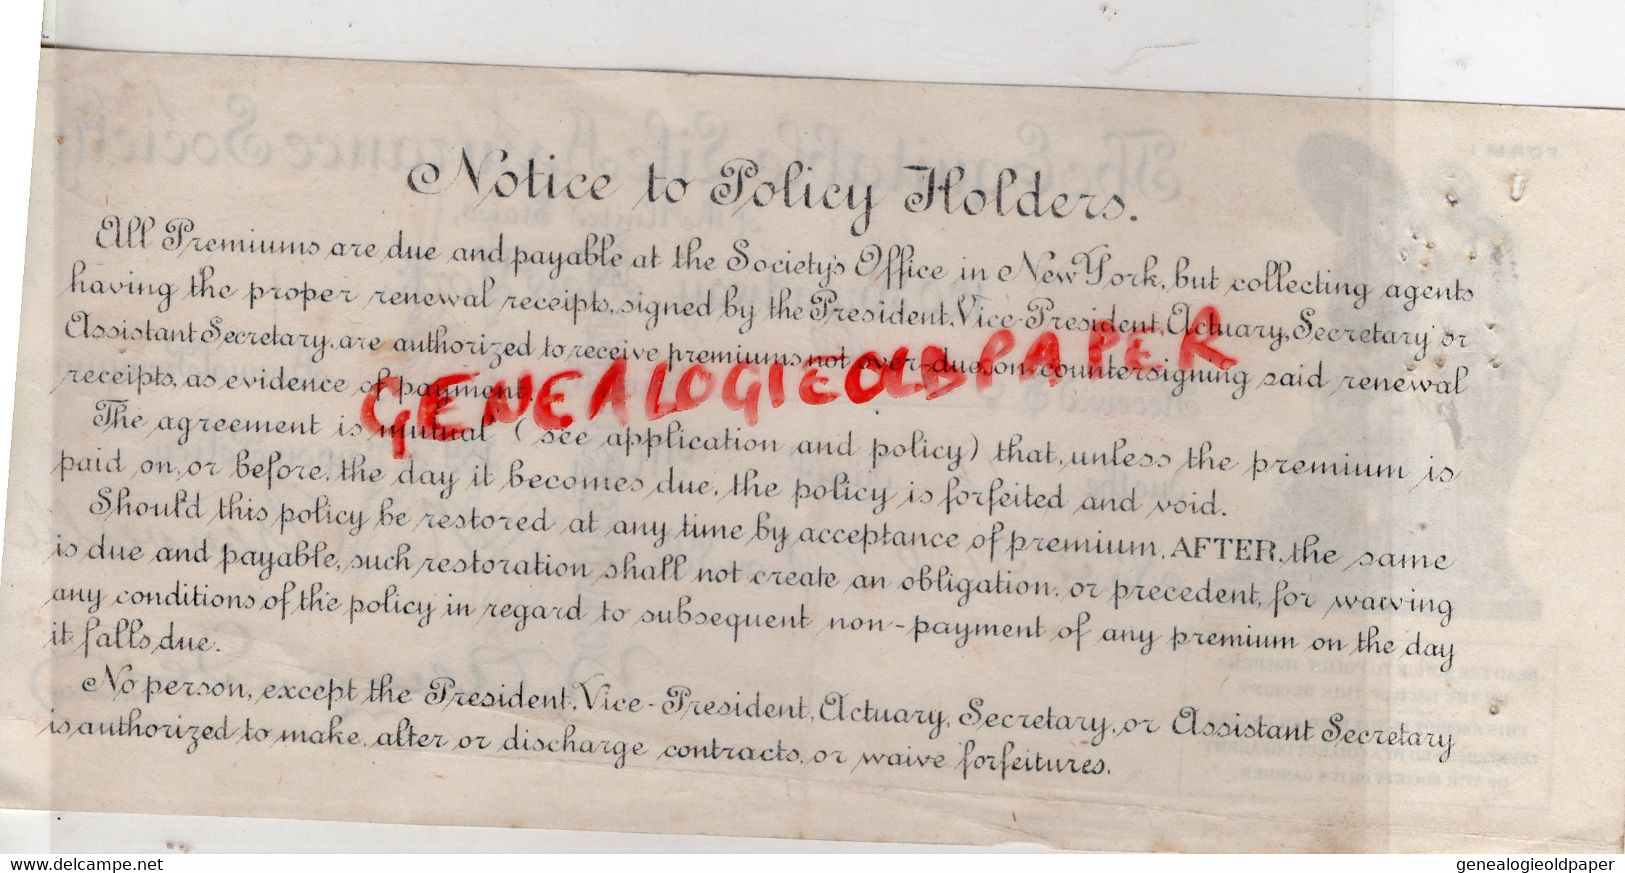 Notice to Policy Holders.
All Premiums are due and payable at the Society's Office in New York, but collecting agents
having the proper renewal receipts, signed by the President, Vice-President, Actuary, Secretary or
Assistant Secretary, are authorized to receive premiums not over-due, on countersigning said renewal
receipts, as evidence of payment.
GENEALOGIEOLDPAPER
The agreement is mutual (see application and policy) that, unless the premium is
paid on, or before, the day it becomes due, the policy is forfeited and void.
Should this policy be restored at any time by acceptance of premium, AFTER, the same
is due and payable, such restoration shall not create an obligation, or precedent, for waiving
any conditions of the policy in regard to subsequent non-payment of any premium on the day
it falls due.
No person, except the President, Vice-President, Actuary, Secretary, or Assistant Secretary
is authorized to make, alter or discharge contracts, or waive forfeitures.
www.delcampe.net
genealogieoldpaper